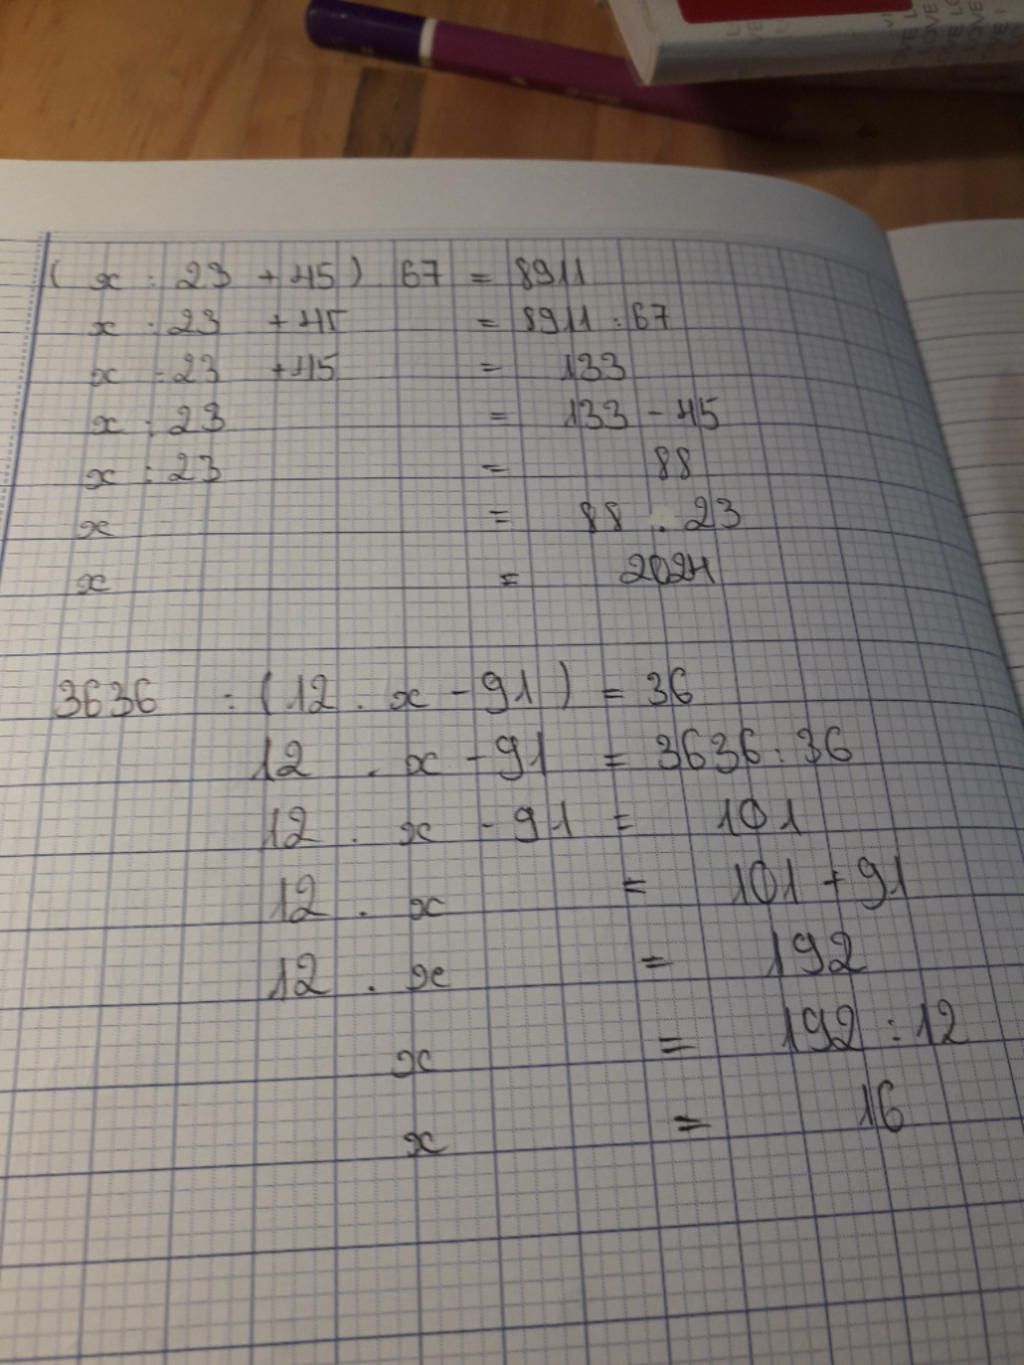 ( x : 23 + 45 ) 67 = 8911
x : 23 + 45 = 8911 : 67
x : 23 + 45 = 133
x : 23 = 133 - 45
x : 23 = 88
x = 88 . 23
x = 2024
3636 : ( 12 . x - 91 ) = 36
12 . x - 91 = 3636 : 36
12 . x - 91 = 101
12 . x = 101 + 91
12 . x = 192
x = 192 : 12
x = 16